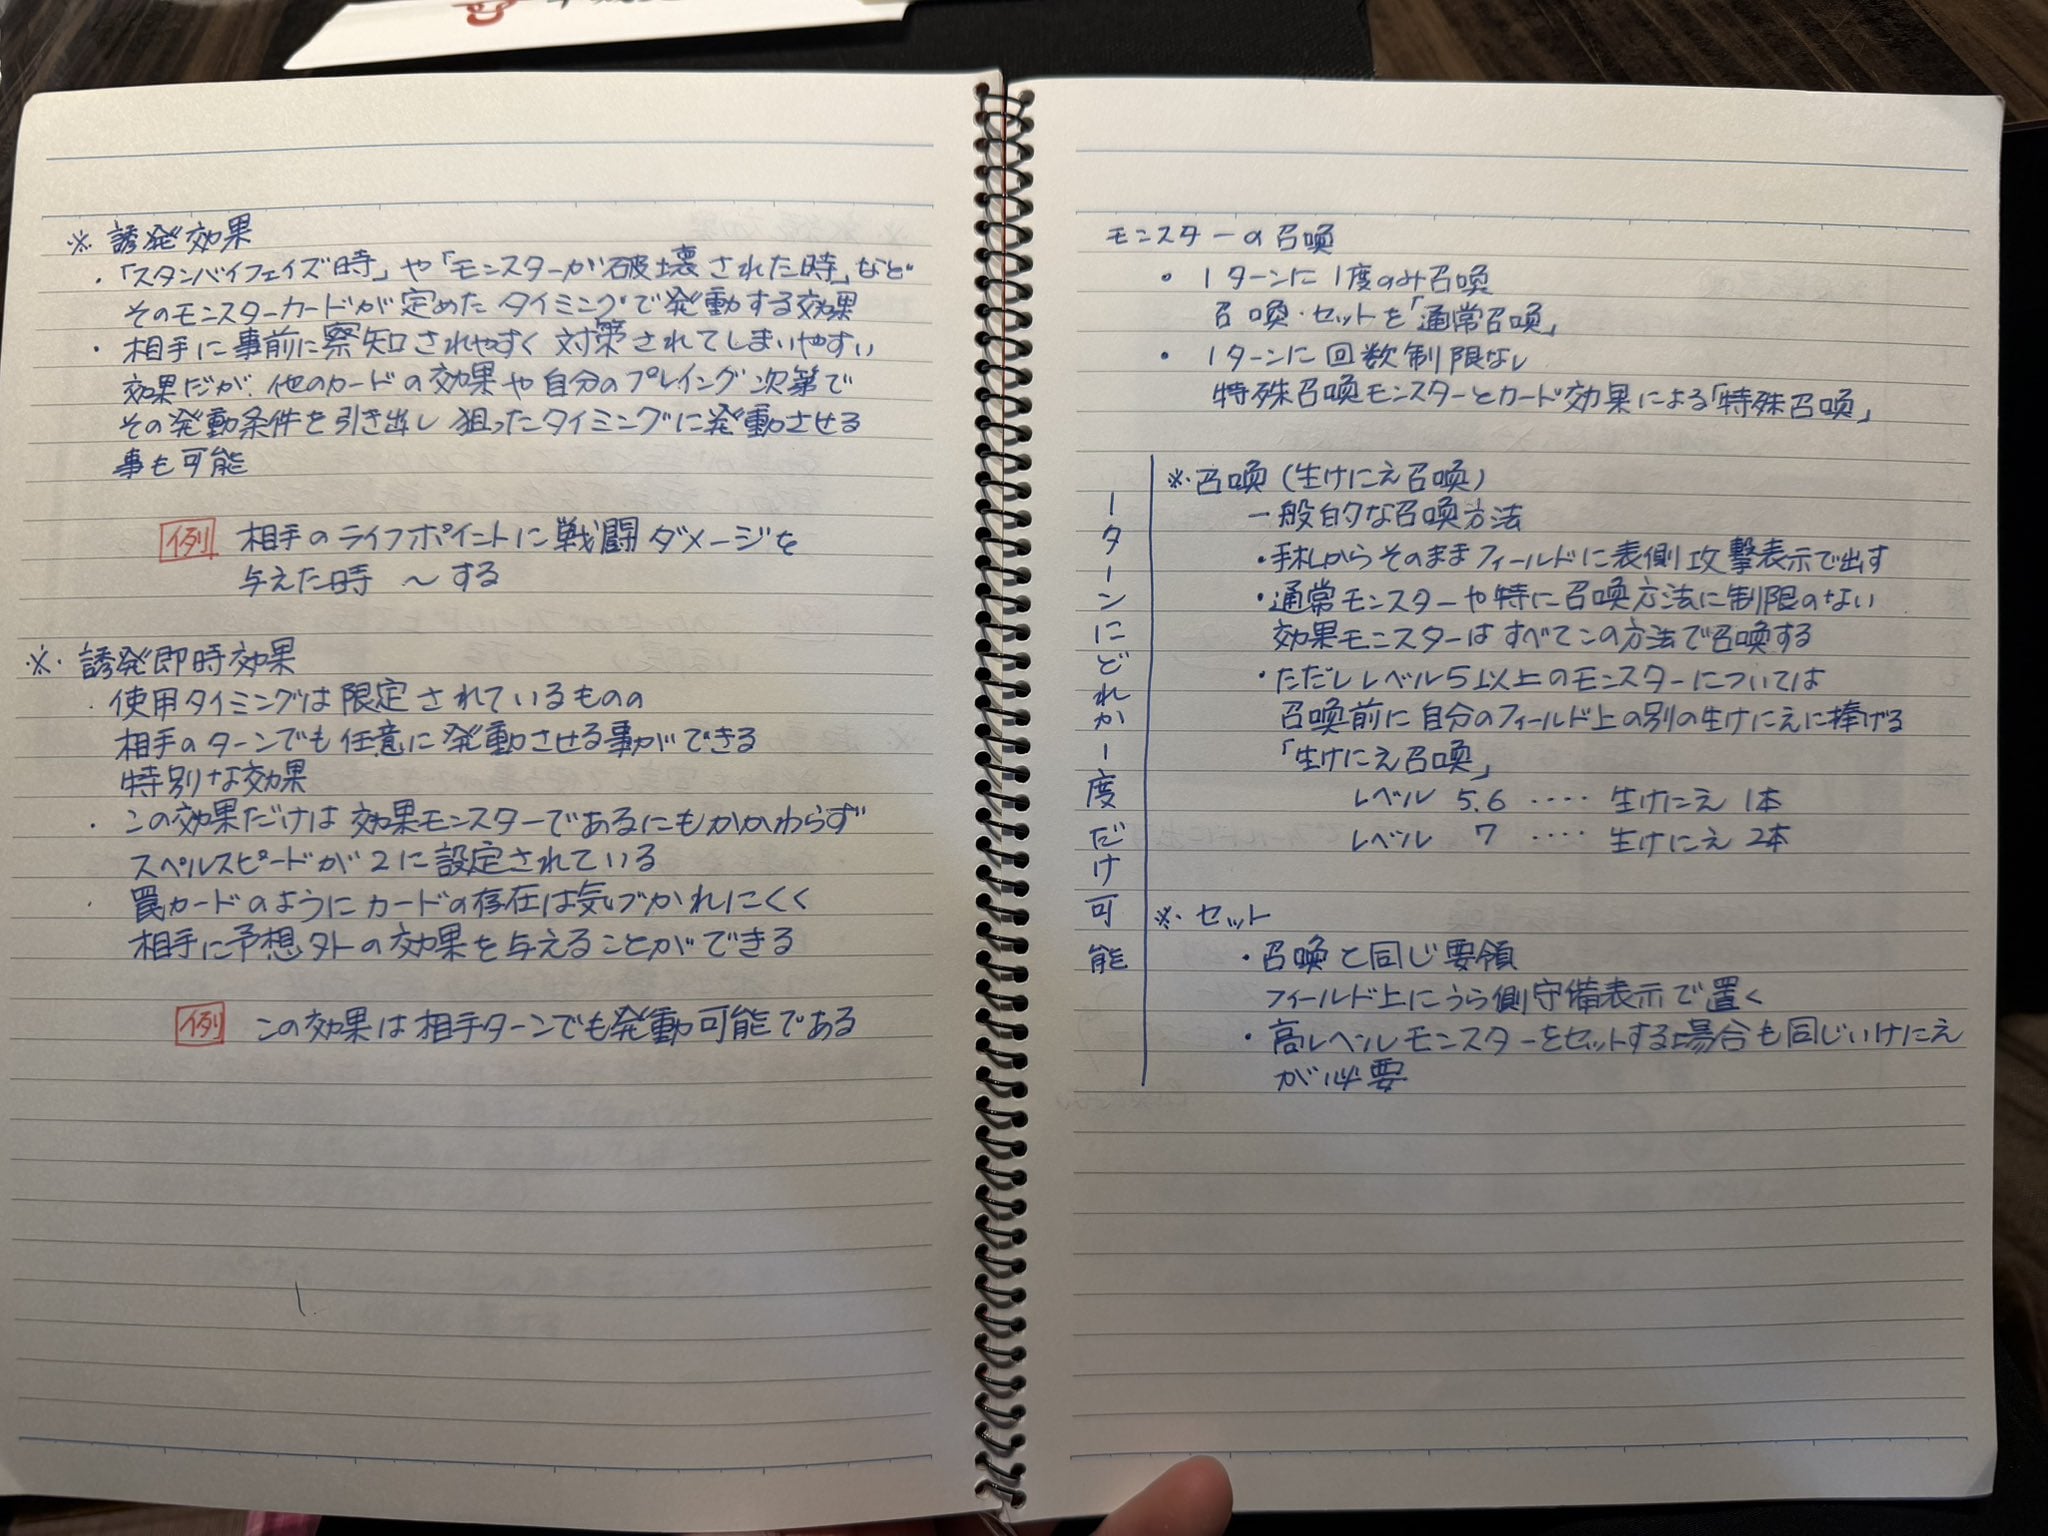 ※ 誘発効果
・「スタンバイフェイズ時」や「モンスターが破壊された時」など
そのモンスターカードが定めたタイミングで発動する効果
・相手に事前に察知されやすく対策されてしまいやすい
効果だが、他のカードの効果や自分のプレイング次第で
その発動条件を引き出し狙ったタイミングに発動させる
事も可能
例 相手のライフポイントに戦闘ダメージを
与えた時 〜する
※・誘発即時効果
・使用タイミングは限定されているものの
相手のターンでも任意に発動させる事ができる
特別な効果
・この効果だけは効果モンスターであるにもかかわらず
スペルスピードが2に設定されている
・罠カードのようにカードの存在は気づかれにくく
相手に予想外の効果を与えることができる
例 この効果は相手ターンでも発動可能である
モンスターの召喚
・1ターンに1度のみ召喚
召喚・セットを「通常召喚」
・1ターンに回数制限なし
特殊召喚モンスターとカード効果による「特殊召喚」
1ターンにどれか1度だけ可能
※・召喚(生けにえ召喚)
一般的な召喚方法
・手札からそのままフィールドに表側攻撃表示で出す
・通常モンスターや特に召喚方法に制限のない
効果モニスターはすべてこの方法で召喚する
・ただしレベル5以上のモンスターについては
召喚前に自分のフィールド上の別の生けにえに捧げる
「生けにえ召喚」
レベル 5.6 ‥‥ 生けにえ 1本
レベル 7 ‥‥ 生けにえ 2本
※・セット
・召喚と同じ要領
フィールド上にうら側守備表示で置く
・高レベルモンスターをセットする場合も同じいけにえ
が必要